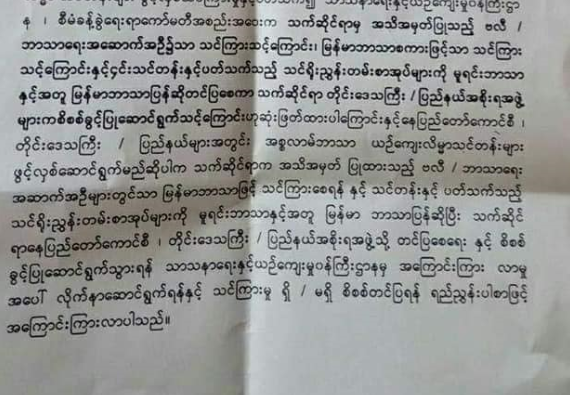 သာသနာရေးနှင့်ယဉ်ကျေးမှုဝန်ကြီးဌာ
န ၊ စီမံခန့်ခွဲရေးရာကော်မတီအစည်းအဝေးက သက်ဆိုင်ရာမှ အသိအမှတ်ပြုသည့် ဗလီ /
ဘာသာရေးအဆောက်အဦ၌သာ သင်ကြားသင့်ကြောင်း၊ မြန်မာဘာသာစကားဖြင့်သာ သင်ကြား
သင့်ကြောင်းနှင့်၎င်းသင်တန်းနှင့်ပတ်သက်သည့် သင်ရိုးညွှန်းတမ်းစာအုပ်များကို မူရင်းဘာသာ
နှင့်အတူ မြန်မာဘာသာပြန်ဆိုတင်ပြစေကာ သက်ဆိုင်ရာ တိုင်းဒေသကြီး / ပြည်နယ်အစိုးရအဖွဲ့
များကစိစစ်ခွင့်ပြုဆောင်ရွက်သင့်ကြောင်းဟုဆုံးဖြတ်ထားပါကြောင်းနှင့်နေပြည်တော်ကောင်စီ ၊
တိုင်းဒေသကြီး / ပြည်နယ်များအတွင်း အစ္စလာမ်ဘာသာ ယဉ်ကျေးလိမ္မာသင်တန်းများ
ဖွင့်လှစ်ဆောင်ရွက်မည်ဆိုပါက သက်ဆိုင်ရာက အသိအမှတ် ပြုထားသည့် ဗလီ / ဘာသာရေး
အဆောက်အဦများတွင်သာ မြန်မာဘာသာဖြင့် သင်ကြားစေရန် နှင့် သင်တန်းနှင့် ပတ်သက်သည့်
သင်ရိုးညွှန်းတမ်းစာအုပ်များကို မူရင်းဘာသာနှင့်အတူ မြန်မာ ဘာသာပြန်ဆိုပြီး သက်ဆိုင်
ရာနေပြည်တော်ကောင်စီ ၊ တိုင်းဒေသကြီး / ပြည်နယ်အစိုးရအဖွဲ့သို့ တင်ပြစေရေး နှင့် စိစစ်
ခွင့်ပြုဆောင်ရွက်သွားရန် သာသနာရေးနှင့်ယဉ်ကျေးမှုဝန်ကြီးဌာနမှ အကြောင်းကြား လာမှု
အပေါ် လိုက်နာဆောင်ရွက်ရန်နှင့် သင်ကြားမှု ရှိ / မရှိ စိစစ်တင်ပြရန် ရည်ညွှန်းပါစာဖြင့်
အကြောင်းကြားလာပါသည်။